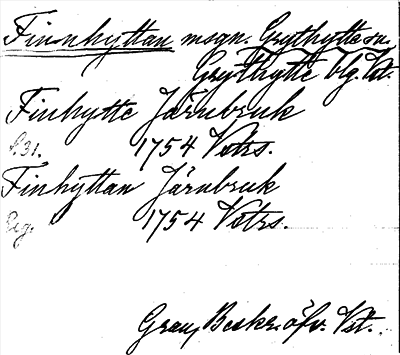 Finnhyttan msgn. Grythyttesn.
Grythytte blg. Vst.
Finhytte Järnbruk
S. 31. 1754 Vstrs.
Finhyttan Järnbruk
Reg. 1754 Vstrs.
Grau, Beskr. öfv. Vst.